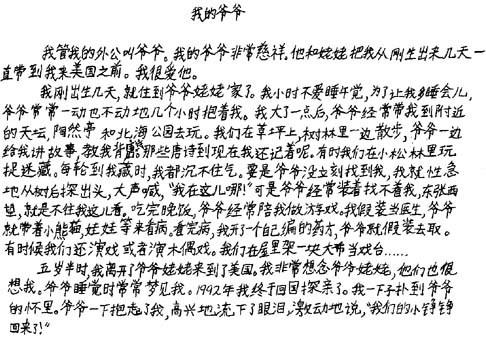 我的爷爷
我管我的外公叫爷爷。我的爷爷非常慈祥。他和姥姥把我从刚生出来几天一
直带到我来美国之前。我很爱他。
我刚出生几天，就住到爷爷姥姥家了。我小时不爱睡午觉，为了让我多睡会儿，
爷爷常常一动也不动地几个小时抱着我。我大了一点后，爷爷经常带我到附近
的天坛，陶然亭和北海公园去玩。我们在草坪上，树林里一边散步，爷爷一边
给我讲故事，教我背唐诗那些唐诗到现在我还记着呢。有时我们在小松林里玩
捉迷藏。每轮到我藏时，我都沉不住气。要是爷爷没立刻找到我，我就性急
地从树后探出头，大声喊，“我在这儿哪！”可是爷爷经常装着找不着我，东张西
望，就是不往我这儿看。吃完晚饭，爷爷经常陪我做游戏。我假装当医生，爷爷
就带着小熊猫，娃娃等来看病。看完病，我开一个自己编的药方，爷爷就假装去取。
有时候我们还演戏或者演木偶戏。我们在屋里架一块大布当戏台……
五岁半时，我离开爷爷姥姥来到了美国。我非常想念爷爷姥姥，他们也很
想我。爷爷睡觉时常常梦见我。1992年我终于回国探亲了。我一下子扑到爷爷
的怀里。爷爷一下把起了我，高兴地流下了眼泪，激动地说，“我们的小铮铮
回来了！”